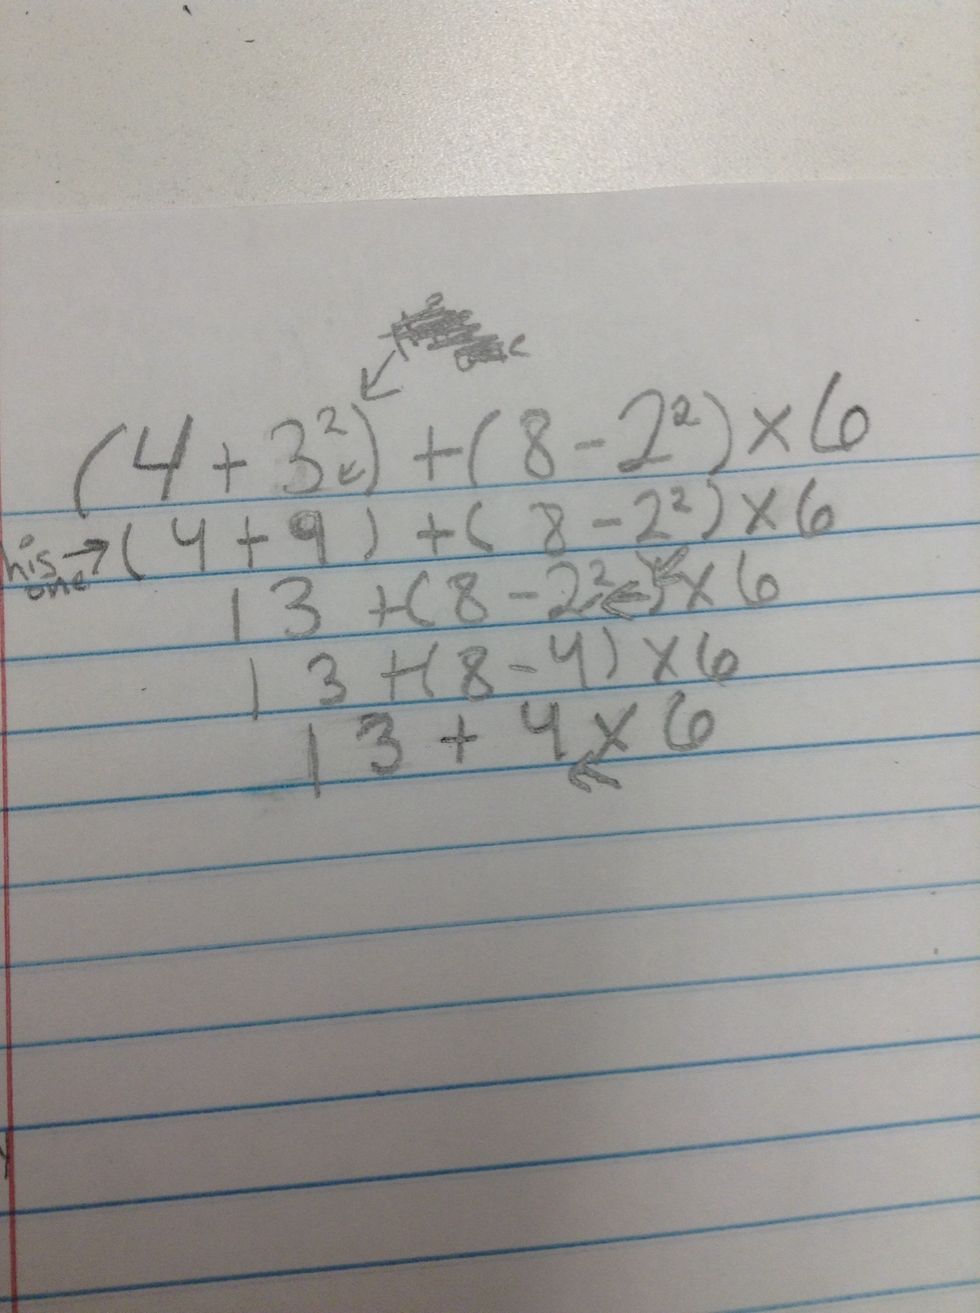 (4 + 3²) + (8 - 2²) × 6
his one → (4 + 9) + (8 - 2²) × 6
13 + (8 - 2²) × 6
13 + (8 - 4) × 6
13 + 4 × 6